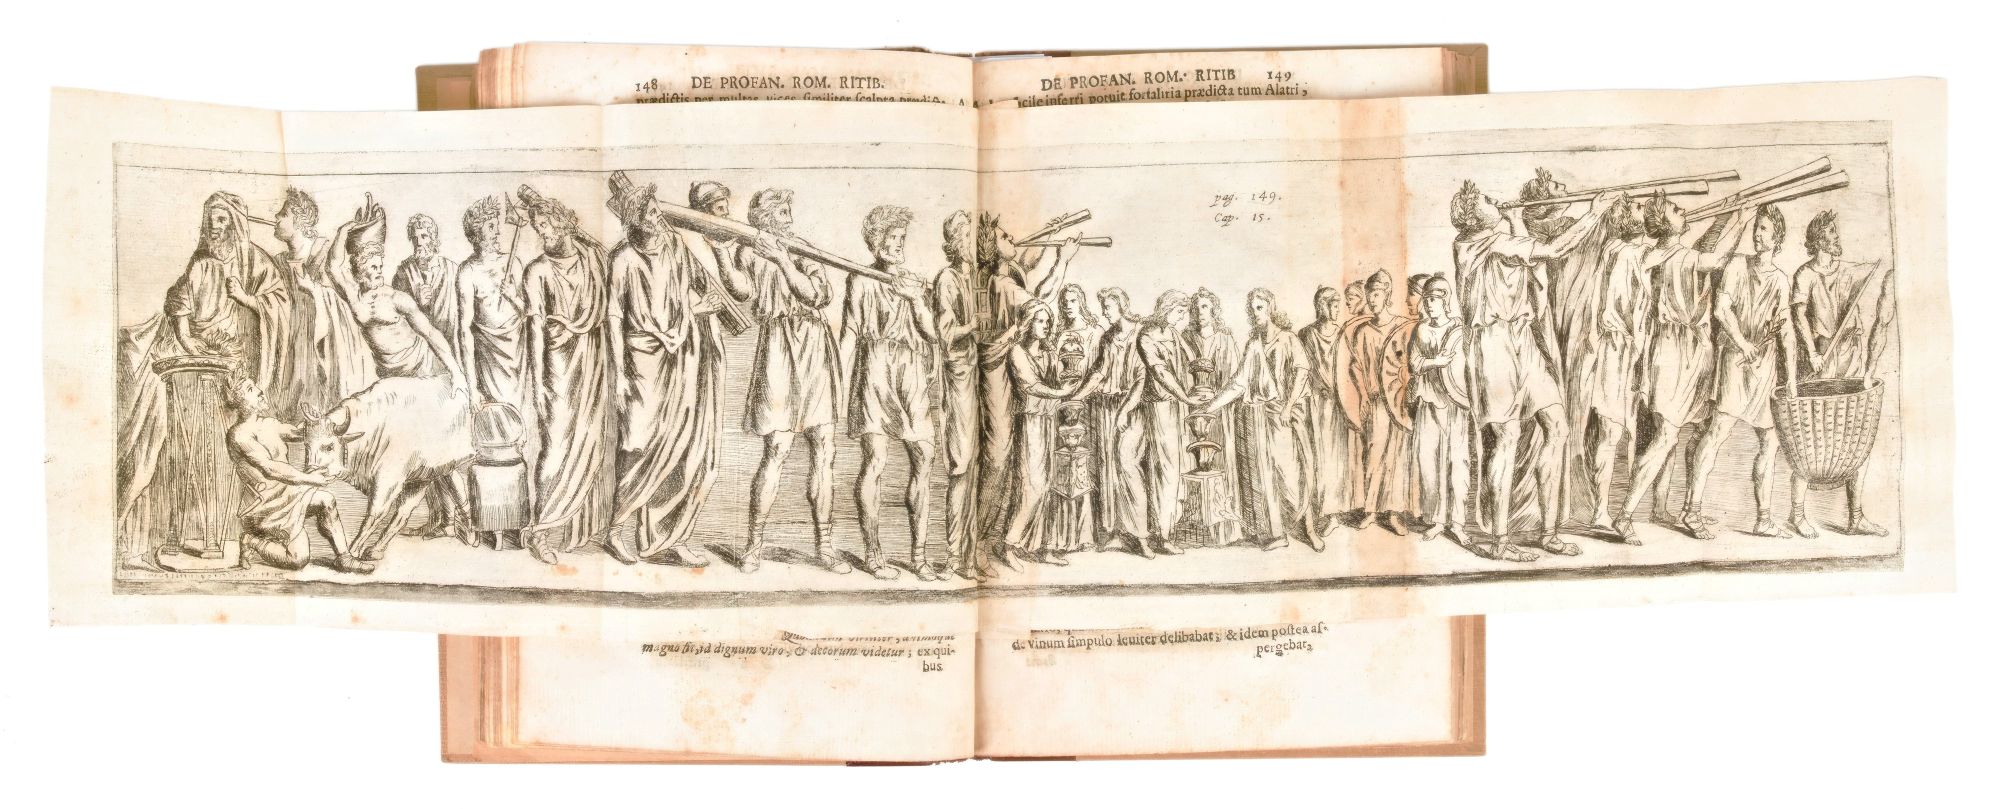 148 DE PROFAN. ROM. RITIB.
prædictis per multas vices similiter scalpta
DE PROFAN. ROM. RITIB 149
facile inferri potuit fortalitia prædicta tum Alatri,
pag. 149.
Cap. 15.
magno fit, id dignum viro, & decorum videtur; ex qui-
bus
de vinum simpulo leuiter delibabat; & idem postea as-
pergebat,